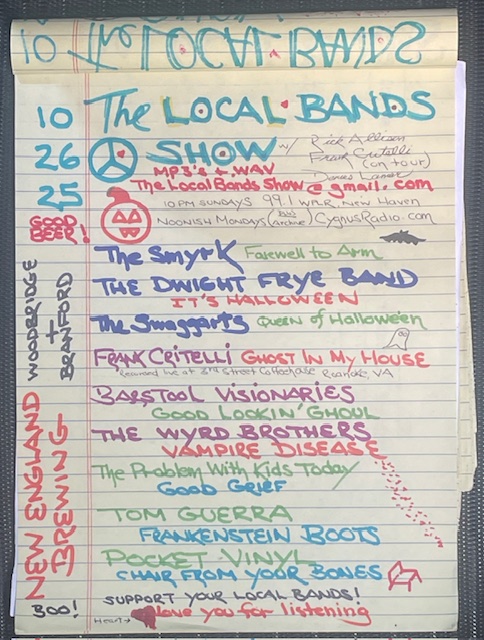 10 The LOCAL BANDS
10 The LOCAL BANDS
26 SHOW w/ Rick Allison
Frank Critelli
(on tour)
25 MP3's + .WAV
The Local Bands Show@gmail.com
10PM SUNDAYS 99.1 WPLR, New Haven
NOONISH MONDAYS (archive) CygnusRadio.com
GOOD BEER!
The Smyrk Farewell to Arm
THE DWIGHT FRYE BAND
IT'S HALLOWEEN
The Swaggarts Queen of Halloween
FRANK CRITELLI GHOST IN MY HOUSE
Recorded live at 3rd Street Coffeehouse Roanoke, VA
BARSTOOL VISIONARIES
GOOD LOOKIN' GHOUL
THE WYRD BROTHERS
VAMPIRE DISEASE
The Problem With Kids Today
GOOD GRIEF
TOM GUERRA
FRANKENSTEIN BOOTS
POCKET VINYL
CHAIR FROM YOUR BONES
SUPPORT YOUR LOCAL BANDS!
HEART→ love you for listening
WOODBRIDGE
+
BRANFORD
NEW ENGLAND
BREWING
BOO!